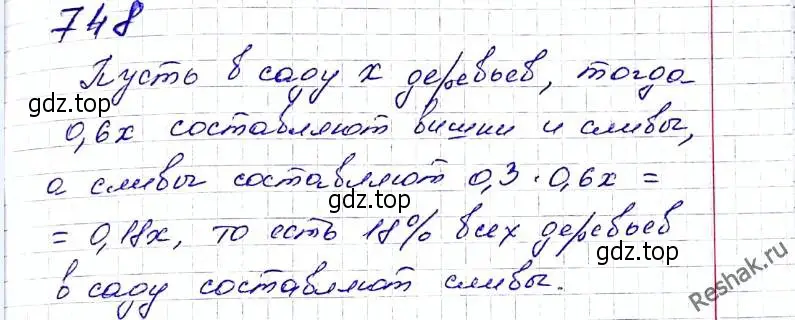 748
Пусть в саду х деревьев, тогда
gdz.top
gdz.top
0,6х составляют вишни и сливы,
а сливы составляют 0,3 · 0,6х =
gdz.top
= 0,18х, то есть 18% всех деревьев
gdz.top
в саду составляют сливы.
Reshak.ru